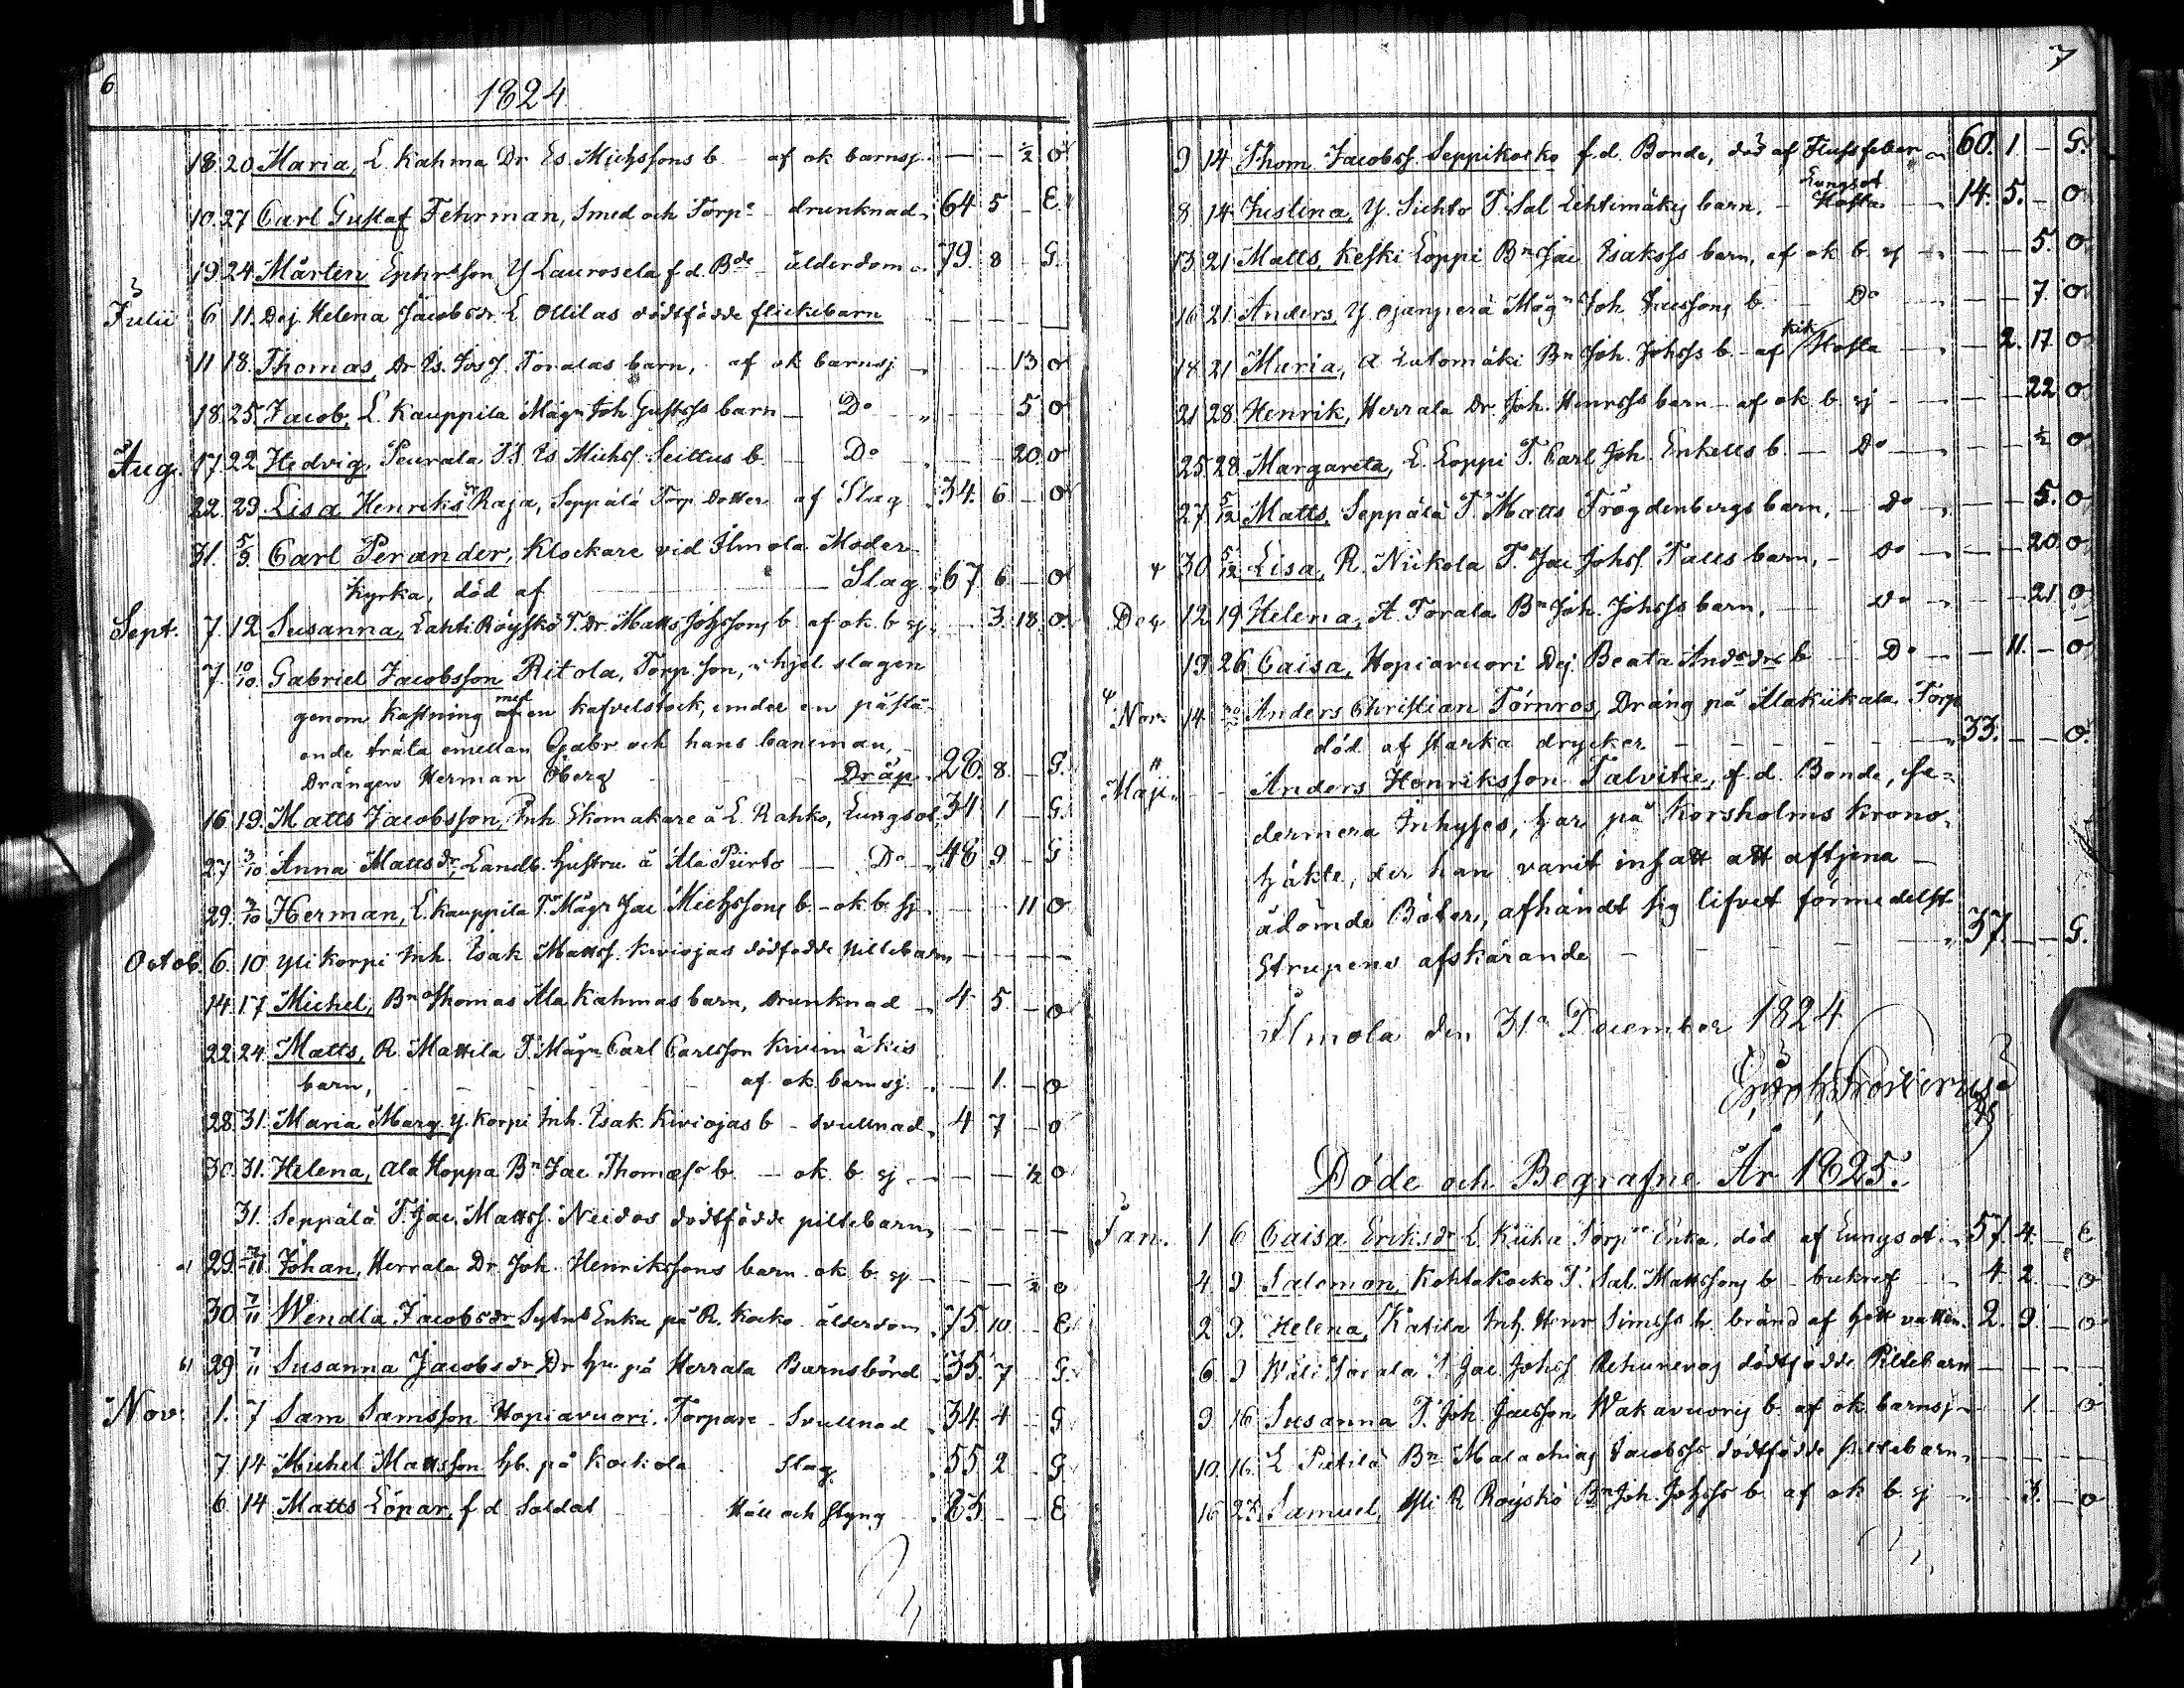 6
1824
18 20 Maria, L. Kahma Dr. Es. Michssons b. af ok barnsj. — — ½ O
10. 27 Carl Gustaf Fehrman, Smed och Torpe drunknad 64 5 — E.
19 24 Mårten Ephrsson Y Laurosela f.d. Bde ålderdom 79. 8 — G.
Julii 6 11. Dej. Helena Jacobsdr L. Ollilas dödfödde flickebarn — — — —
11 18. Thomas, Dr Es. Jos. Toralas barn, af ok barnsj — — 13. O
18. 25. Jacob, L. Kauppila Mågn Joh. Gustfss barn — Do — — 5 O
Aug. 17. 22. Hedvig, Peurala Es Michs. b. — Do — — 20. O
22. 29. Lisa Henriksdr Raja, Seppälä Torp. Dotter af Slag 34. 6 — O
31. 5/9. Carl Perander, Klockare vid Ilmola Moder-
Kyrka, död af — Slag 67 6 — O
Sept. 7. 12 Susanna, Lahti Röyskö T. Dr. Matts Johssons b. af ok. b. sj. — 3. 18. O.
7. 10/10. Gabriel Jacobsson Ritola, Torp. son, ihjelslagen
genom kastning med en kafvelstock, under en påstå-
ende träta emellan Gabr. och hans baneman,
Drängen Herman Öberg — Dråp 28. 8. — G.
16. 19. Matts Jacobsson, Inh. Skomakare å L. Rahko, Lungsot 34 1 — G.
27 3/10 Anna Mattsdr, Landb. hustru å Ala Piirto — Do — 48 9 — G
29. 3/10 Herman, L. Kauppila T. Mågr Jac Michssons b. — ok. b. sj. — — 11 O
Octob. 6. 10 Yli Korpi Inh. Isak Matts. Kiviojas dödfödde piltebarn — — — —
14. 17 Michel, Bn Thomas Ala Kahmas barn, drunknad — 4. 5. — O
22. 24. Matts, R. Mattila T. Mågn Carl Carlsson Kivimäkis
barn, — — — af ok barnsj. — 1. — O
28. 31. Maria Marg. Y. Korpi Inh. Isak Kiviojas b — svullnad 4 7 — O
30. 31. Helena, Ala Hoppa Bn Jac Thomæs b. — ok. b. sj. — — ½ O
31. Seppälä T. Jac. Matts. Neidos dödfödde piltebarn — — —
29. 7/11 Johan, Herrala Dr Joh. Henrikssons barn ok. b. sj — — ½ O
30. 7/11 Wendla Jacobsdr Sytns Enka på R. Kocko ålderdom 75. 10. — E
29 7/11 Susanna Jacobsdr Dr hu. på Herrala Barnsbörd 35. 7 — G.
Nov. 1. 7 Sam Samsson Hopiavuori, Torpare — Svullnad 34 4 — G
7 14 Michel Mattsson hb. på Kockola Slag. 55 2 — G
6 14 Matts Löpar, f.d Soldat Håll och Styng 83. — — E
7
9 14. Thom Jacobss. Seppikocko f.d. Bonde, död af Flussfeber 60. 1. — G.
8. 14. Justina, Y. Siehto T. Sal Lehtimäkis barn. — Lungsot 14. 5. — O
13 21. Matts, Keski Loppi Bn Jac Isakss barn, af ok b. sj — — 5. O
16 21. Anders, Y. Ojanperä Mågn Joh. Jacssons b. — Do — — 7. O
18. 21. Maria, A Lutomäki Bn Joh. Johss b. — af kik Hosta — 2. 17. O
21. 28. Henrik, Herrala Dr. Joh. Henrss barn — af ok. b. sj — — 22 O
25. 28. Margareta, L. Loppi T. Carl Joh. Enkells b. — Do — — ½ O
27 5/12 Matts, Seppälä T. Matts Trögdenbergs barn, — Do — — 5. O
30 5/12 Lisa, R. Nickola T. Jac Johss. Talls barn, — Do — — 20. O
Dec 12. 19. Helena, A. Torala Bn Joh. Johsss barn, — Do — — 21. O
19. 26 Caisa, Hopiavuori Dej. Beata Andsdrs b. — Do — 11. — O
Nov. 14. Anders Christian Törnros, Dräng på Alakiikala Torp
död af starka drycker — — — 33. — — O.
Maji — Anders Henriksson Talvitie, f.d. Bonde, se-
dermera Inhyses, har på Korsholms Krono-
häkte, der han varit insatt att aftjena
ådömde Böter, afhändt sig lifvet förmedelst
Strupens afskärande — — — 37. — — G.
Ilmola den 31a December 1824
Döde och Begrafne År 1825.
Jan. 1 6 Caisa Eriksdr L. Kiiha Torpe Enka, död af Lungsot. 57. 4. — E
4 9 Salomon, Kohtakocko T. Sal. Mattssons b — bukref — 4 2. — O
2 9. Helena, Katila Inh. Henr Simsss b. bränd af hett vatten. 2. 9. — O
6. 9 Wäli Torala T. Jac Johss. dödfödde Piltebarn — — —
9 16 Susanna T. Joh. Jacsson Wakavuoris b. af ok barnsj — 1. — O
10. 16. L. Pietilä Bn Malachias Jacobsss dödfödde piltebarn, — — —
16 23. Samuel, Yli R Röyskö Bn Joh. Johsss b. af ok b. sj — 3. — O